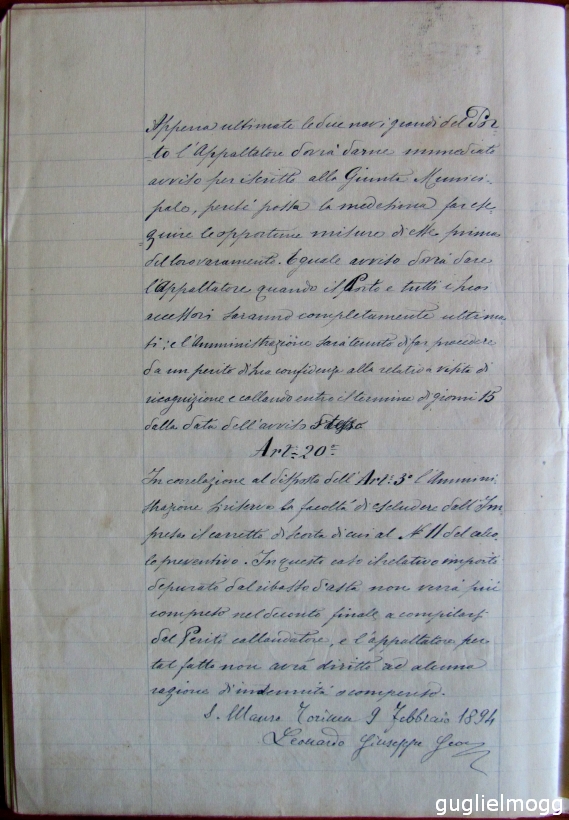 Appena ultimate le due navi grandi del Por-
-to l'Appaltatore dovrà darne immediato
avviso per iscritto alla Giunta Munici-
pale, perché possa la medesima far ese-
=guire le opportune misure di esse prima
del loro varamento. Eguale avviso dovrà dare
l'Appaltatore quando il Porto e tutti i suoi
accessori saranno completamente ultima-
ti; e l'Amministrazione sarà tenuta di far procedere
da un perito di sua confidenza alla relativa visita di
ricognizione e collaudo entro il termine di giorni 15
dalla data dell'avviso stesso
Art. 20°
In correlazione al disposto dell'Art. 3° l'Ammini-
strazione si riserva la facoltà di escludere dall'Im-
presa il carretto di scorta di cui al N. 11 del calco-
lo preventivo. In questo caso il relativo importo
depurato dal ribasso d'asta non verrà più
compreso nel deconto finale a compilarsi
dal Perito collaudatore, e l'appaltatore per
tal fatto non avrà diritto ad alcuna
ragione di indennità o compenso.
S. Mauro Torinese 9 Febbraio 1894
Leonardo Giuseppe Geom
guglielmogg